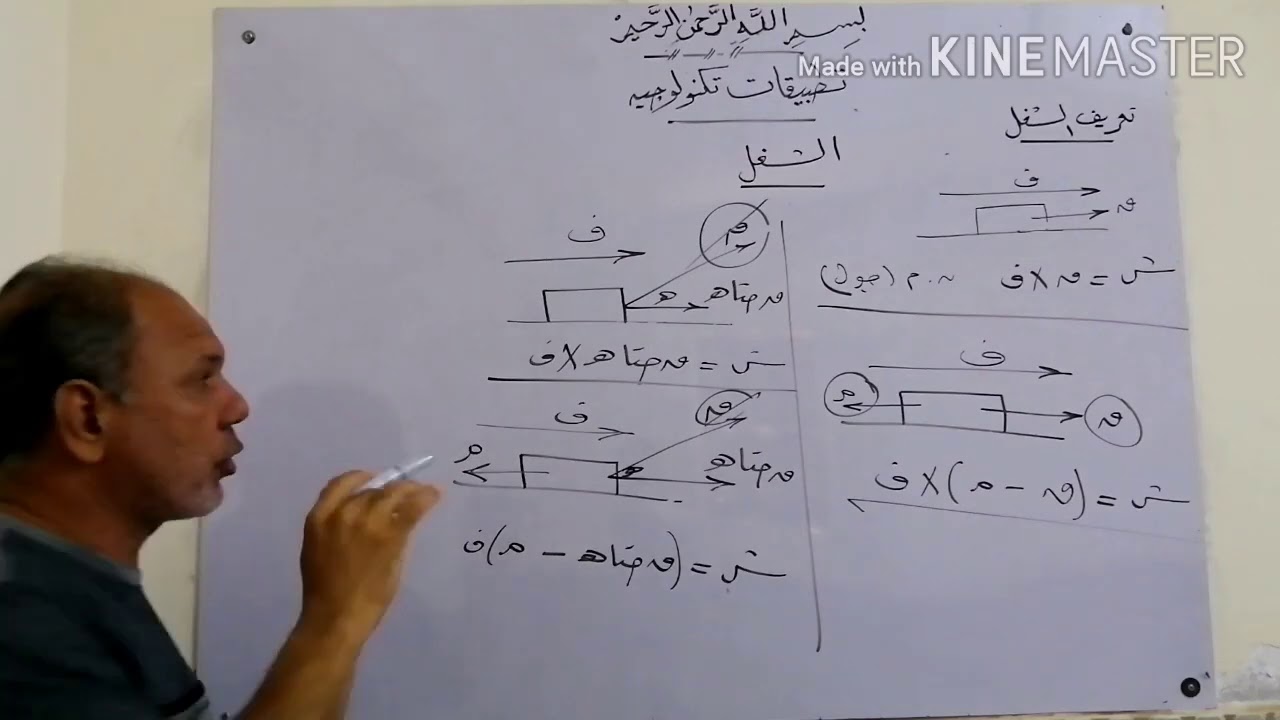 بِسمِ اللَّهِ الرَّحمٰنِ الرَّحيمِ
Made with KINEMASTER
تطبيقات تكنولوجيه
الشغل
تعريف الشغل
ف
ق
ش = ق × ف ن.م (جول)
ف
م
ق
ش = (ق - م) × ف
ف
ق
هـ
ق جتاهـ
ش = ق جتاهـ × ف
ف
ق
م
ق جتاهـ
ش = (ق جتاهـ - م) ف